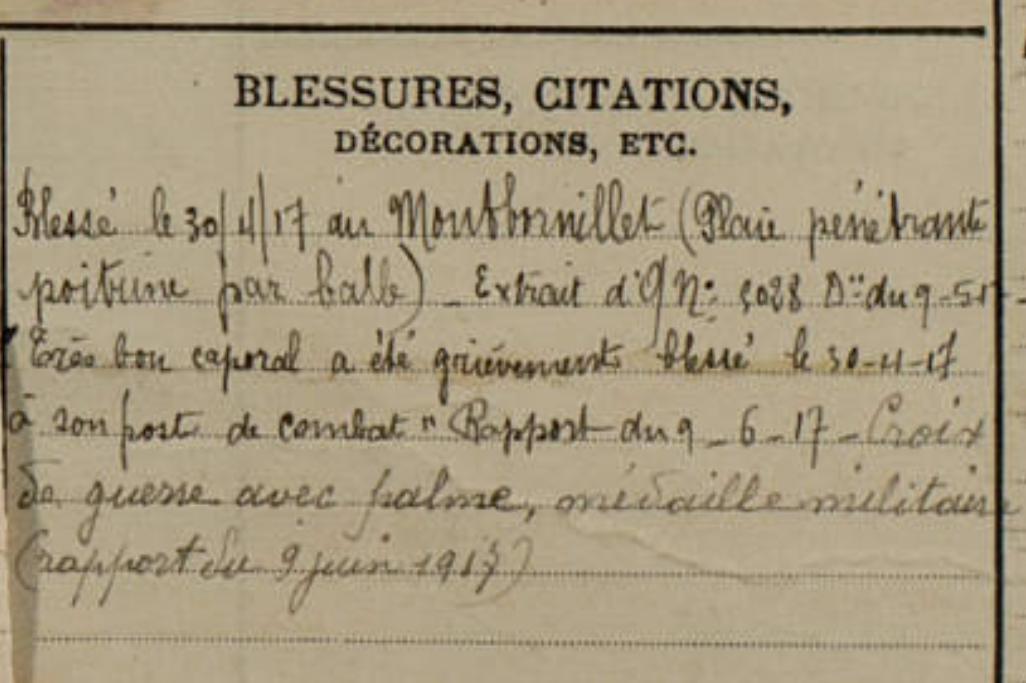 BLESSURES, CITATIONS,
DÉCORATIONS, ETC.
Blessé le 30/4/17 au Montbornillet (Plaie pénétrante
poitrine par balle) _ Extrait d'O N° 5028 D" du 9-5-17
"Très bon caporal a été grièvement blessé le 30-4-17
à son poste de combat" Rapport du 9_6_17_Croix
de guerre avec palme, médaille militaire
(rapport du 9 juin 1917)